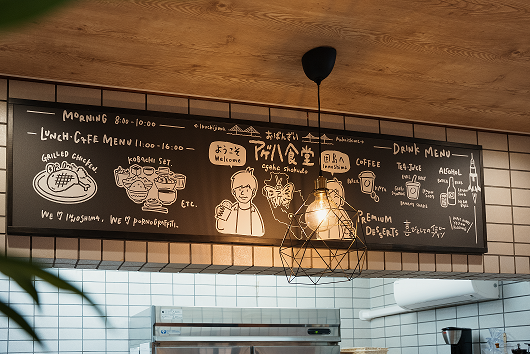 MORNING 8:00-10:00
LUNCH・CAFE MENU 11:00-16:00
GRILLED CHICKEN
KOBACHI SET.
ETC.
WE ♡ HIROSHIMA, WE ♡ PORNOGRAFFITTI.
おばんざい
アゲハ食堂
agaha shokudo
ようこそ
Welcome
因島へ
Innoshima
DRINK MENU
COFFEE
TEA・JUICE
ALCOHOL
PREMIUM
DESSERTS